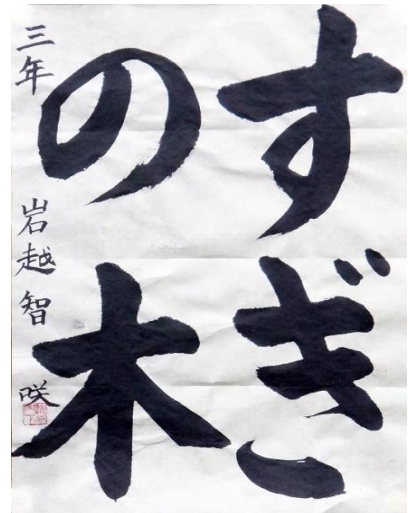 すぎ
の木
三年 岩越智咲